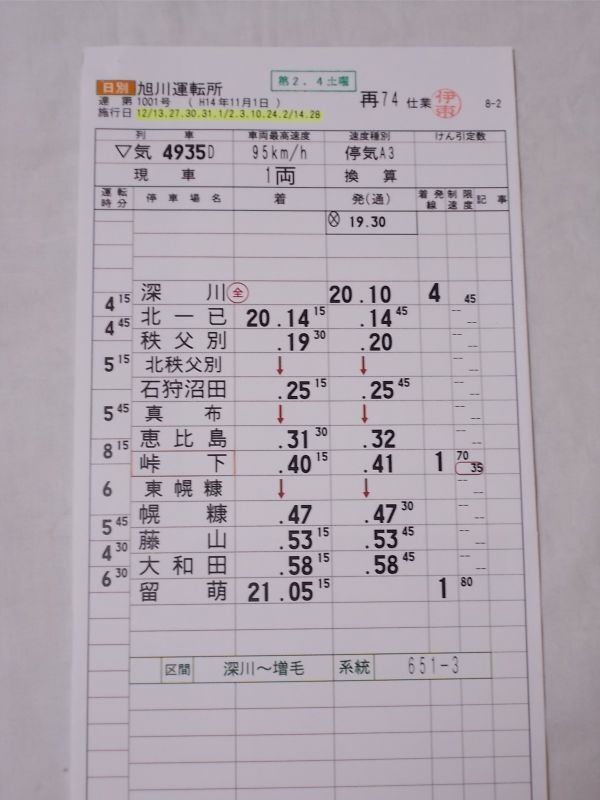 第2．4土曜
日別 旭川運転所
運 第1001号 （ H14年11月1日 ） 再74 仕業 伊東 8-2
施行日 12/13.27.30.31.1/2.3.10.24.2/14.28
列 車 車両最高速度 速度種別 けん引定数
▽気 4935D 95km/h 停気A3
現 車 1両 換 算
運転時分 停車場名 着 発(通) 着発線 制限速度 記事
⊗ 19.30
深 川 全 20.10 4 45
4 15
北一已 20.14 15 .14 45
4 45
秩父別 .19 30 .20
北秩父別 ↓ ↓
5 15
石狩沼田 .25 15 .25 45
真 布 ↓ ↓
5 45
恵比島 .31 30 .32
8 15
峠 下 .40 15 .41 1 70 35
東幌糠 ↓ ↓
6
幌 糠 .47 .47 30
5 45
藤 山 .53 15 .53 45
4 30
大和田 .58 15 .58 45
6 30
留 萌 21.05 15 1 80
区間 深川～増毛 系統 651-3